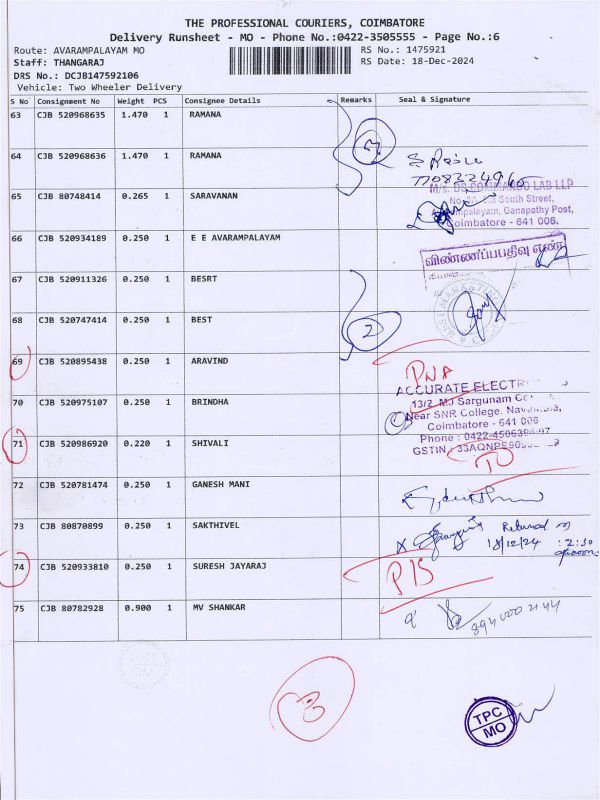 THE PROFESSIONAL COURIERS, COIMBATORE
Delivery Runsheet - MO - Phone No.:0422-3505555 - Page No.:6
Route: AVARAMPALAYAM MO RS No.: 1475921
Staff: THANGARAJ RS Date: 18-Dec-2024
DRS No.: DCJB147592106
Vehicle: Two Wheeler Delivery
S No Consignment No Weight PCS Consignee Details Remarks Seal & Signature
63 CJB 520968635 1.470 1 RAMANA
64 CJB 520968636 1.470 1 RAMANA
65 CJB 80748414 0.265 1 SARAVANAN
LAB LLP
South Street,
Ganapathy Post,
Coimbatore - 641 006.
66 CJB 520934189 0.250 1 E E AVARAMPALAYAM
விண்ணப்பபதிவு எண்
67 CJB 520911326 0.250 1 BESRT
68 CJB 520747414 0.250 1 BEST
2
69 CJB 520895438 0.250 1 ARAVIND
PNA
ACCURATE ELECTR
70 CJB 520975107 0.250 1 BRINDHA
13/2, MJ Sargunam
Near SNR College,
Coimbatore - 641 006
Phone : 0422-4506
71 CJB 520986920 0.220 1 SHIVALI
GSTIN : 33AQNPS90
72 CJB 520781474 0.250 1 GANESH MANI
73 CJB 80870899 0.250 1 SAKTHIVEL
18/12/24 : 2:30
74 CJB 520933810 0.250 1 SURESH JAYARAJ
75 CJB 80782928 0.900 1 MV SHANKAR
3
TPC
MO